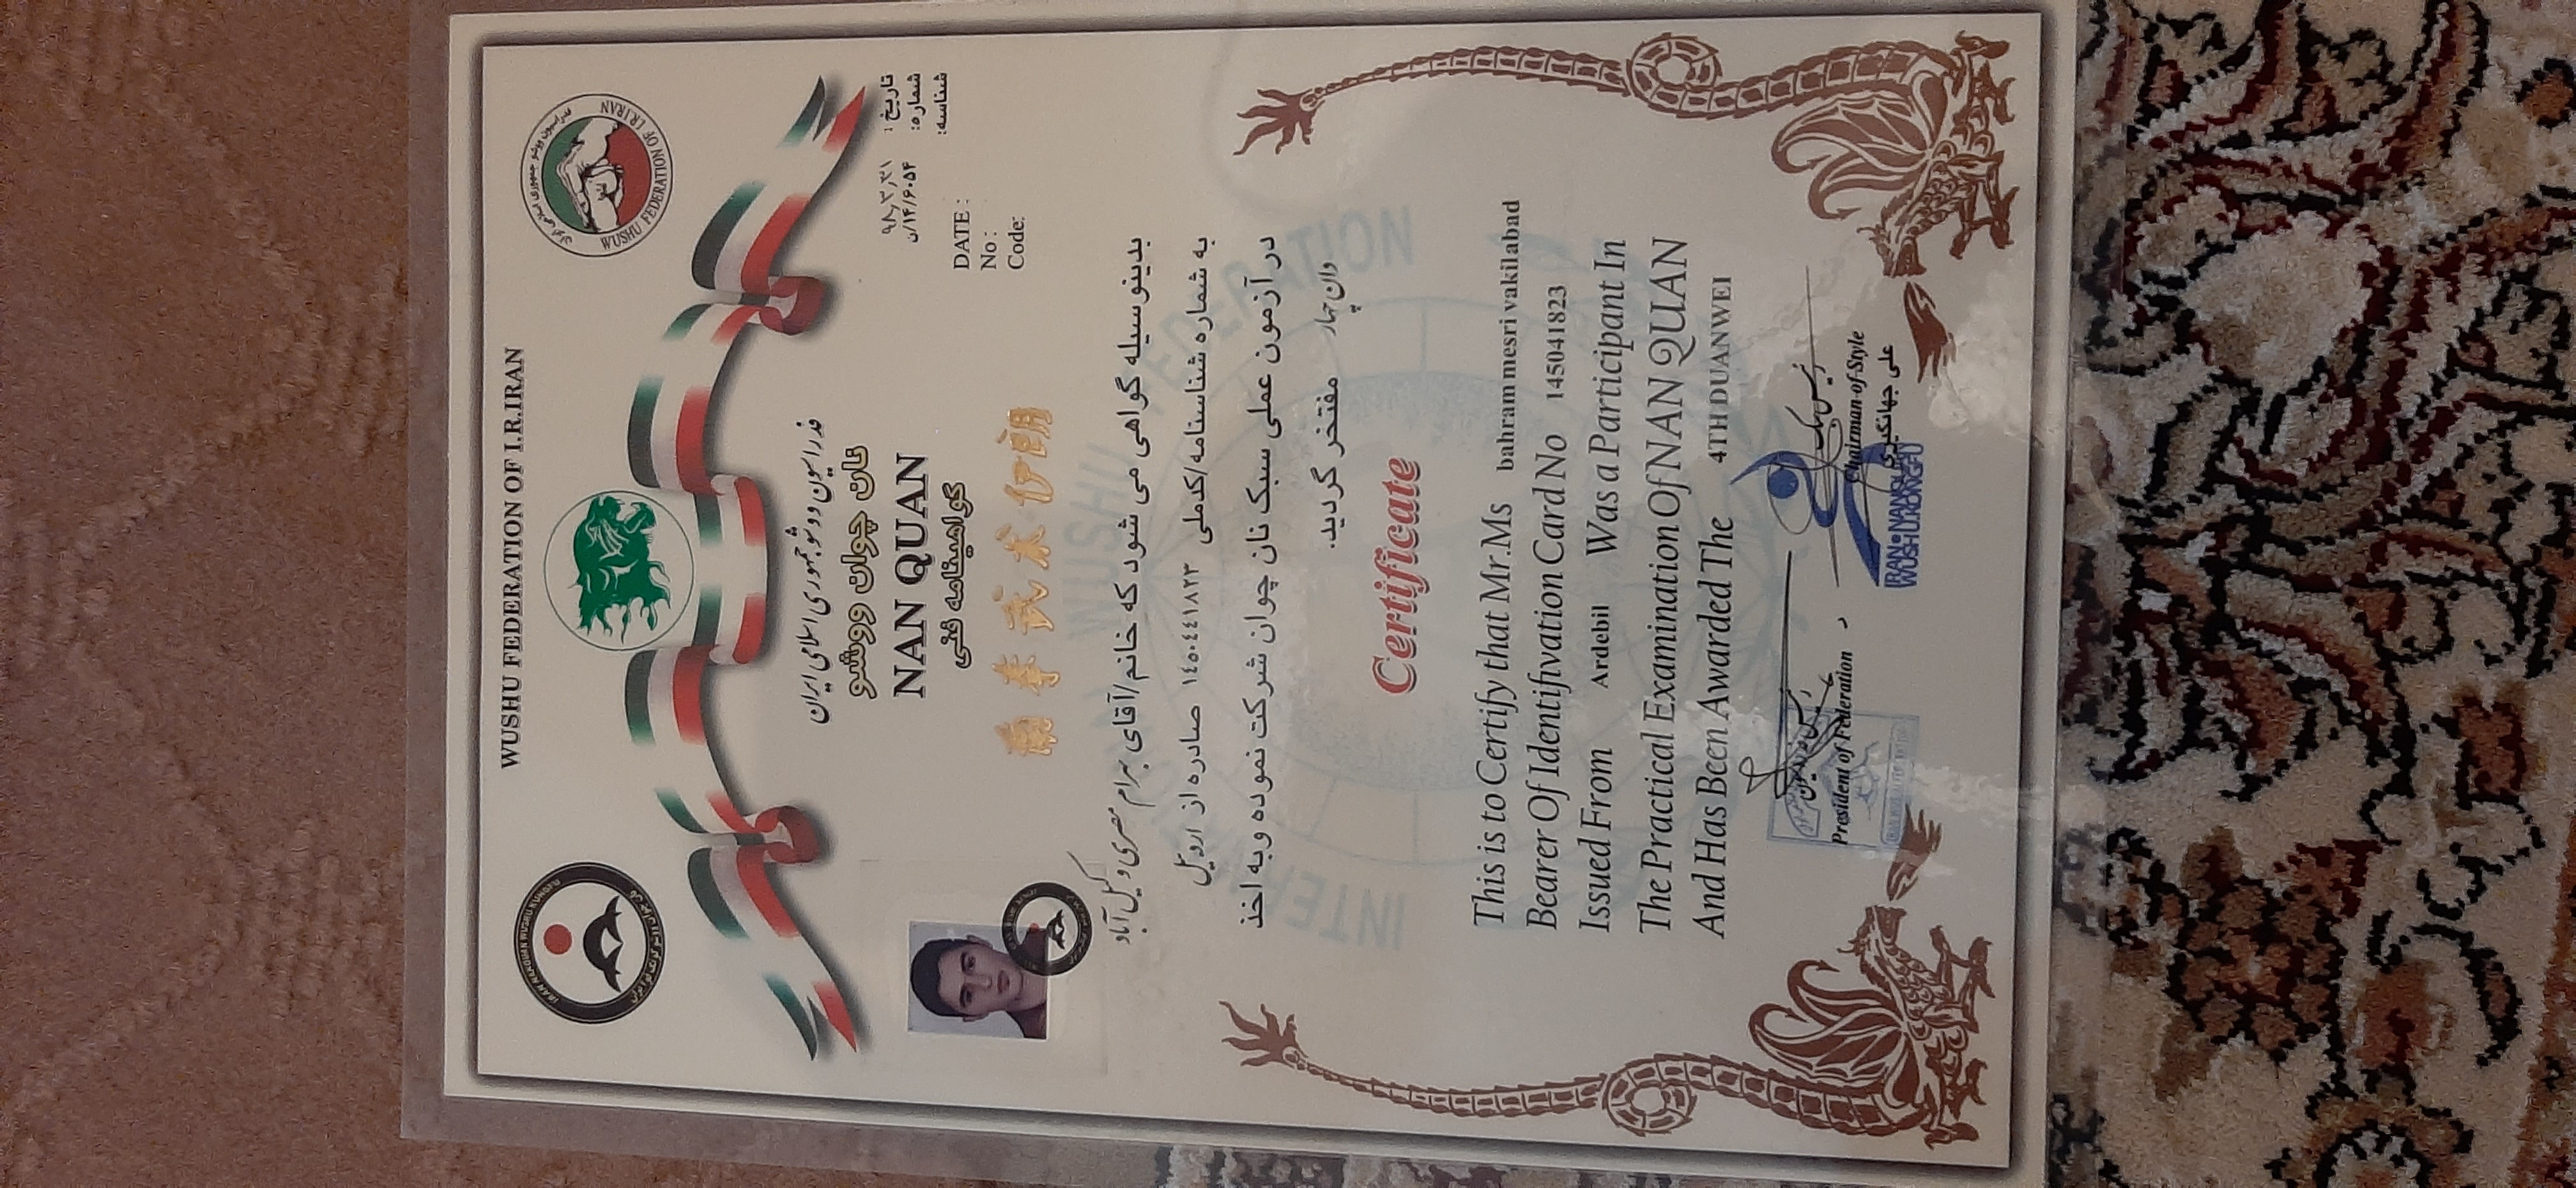 WUSHU FEDERATION OF I.R.IRAN
WUSHU FEDERATION OF I.R.IRAN
فدراسیون ووشو جمهوری اسلامی ایران
نان چوان ووشو
NAN QUAN
گواهینامه فنی
南拳 武术 伊朗
تاریخ : ۹۸,۳,۳۱
شماره: ۶۰۵۴/۱۴/ن
شناسه:
DATE :
No :
Code:
بدینوسیله گواهی می شود که خانم/آقای بهرام مصری وکیل آباد
به شماره شناسنامه/کدملی ۱٤٥٠٤٤١٨٢٣ صادره از اردبیل
در آزمون عملی سبک نان چوان شرکت نموده وبه اخذ
دان چهار مفتخر گردید.
Certificate
This is to Certify that Mr.Ms bahram mesri vakilabad
Bearer Of Identifivation Card No 1450441823
Issued From Ardebil Was a Participant In
The Practical Examination Of NAN QUAN
And Has Been Awarded The 4TH DUANWEI
President of Federation
رئیس سبک
Chairman of Style
علی جهانگیری
WUSHU KUNGFU
INTERNATIONAL WUSHU FEDERATION